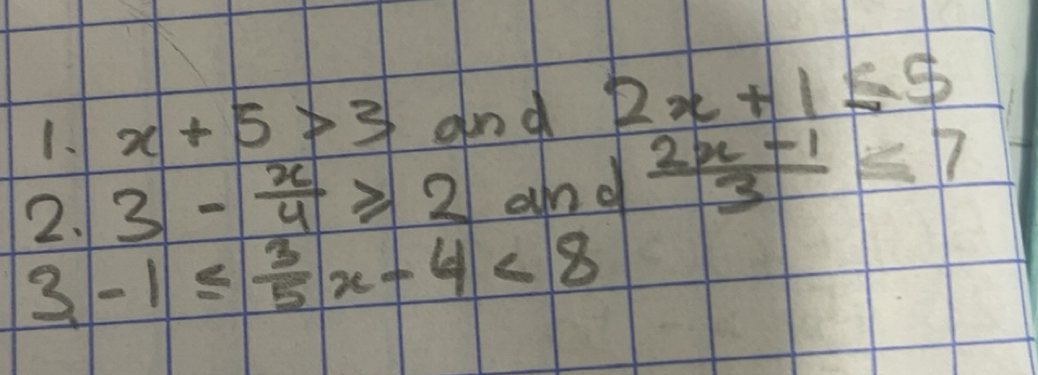 1. x + 5 > 3 and 2x + 1 ≤ 5
2. 3 - x/4 ≥ 2 and (2x - 1)/3 ≤ 7
3. -1 ≤ 3/5 x - 4 < 8